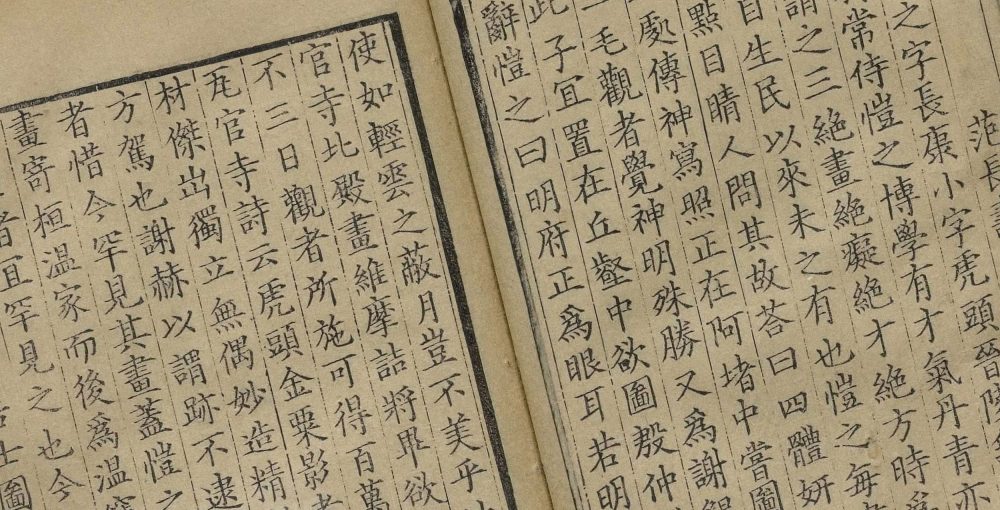 范長
之字長康小字虎頭晉陵
常侍愷之博學有才氣丹青亦
謂之三絕畫絕癡絕才絕方時爲
曰生民以來未之有也愷之每
點目睛人問其故荅曰四體妍
處傳神寫照正在阿堵中嘗圖
毛觀者覺神明殊勝又爲謝鯤
此子宜置在丘壑中欲圖殷仲
辭愷之曰明府正爲眼耳若明
使如輕雲之蔽月豈不美乎
官寺比殿畫維摩詰將畢欲
不三日觀者所施可得百萬
瓦官寺詩云虎頭金粟影者
材傑出獨立無偶妙造精
方駕也謝赫以謂跡不逮
者惜今罕見其畫蓋愷之
畫寄桓温家而後爲温竊
者且罕見之也今
士圖